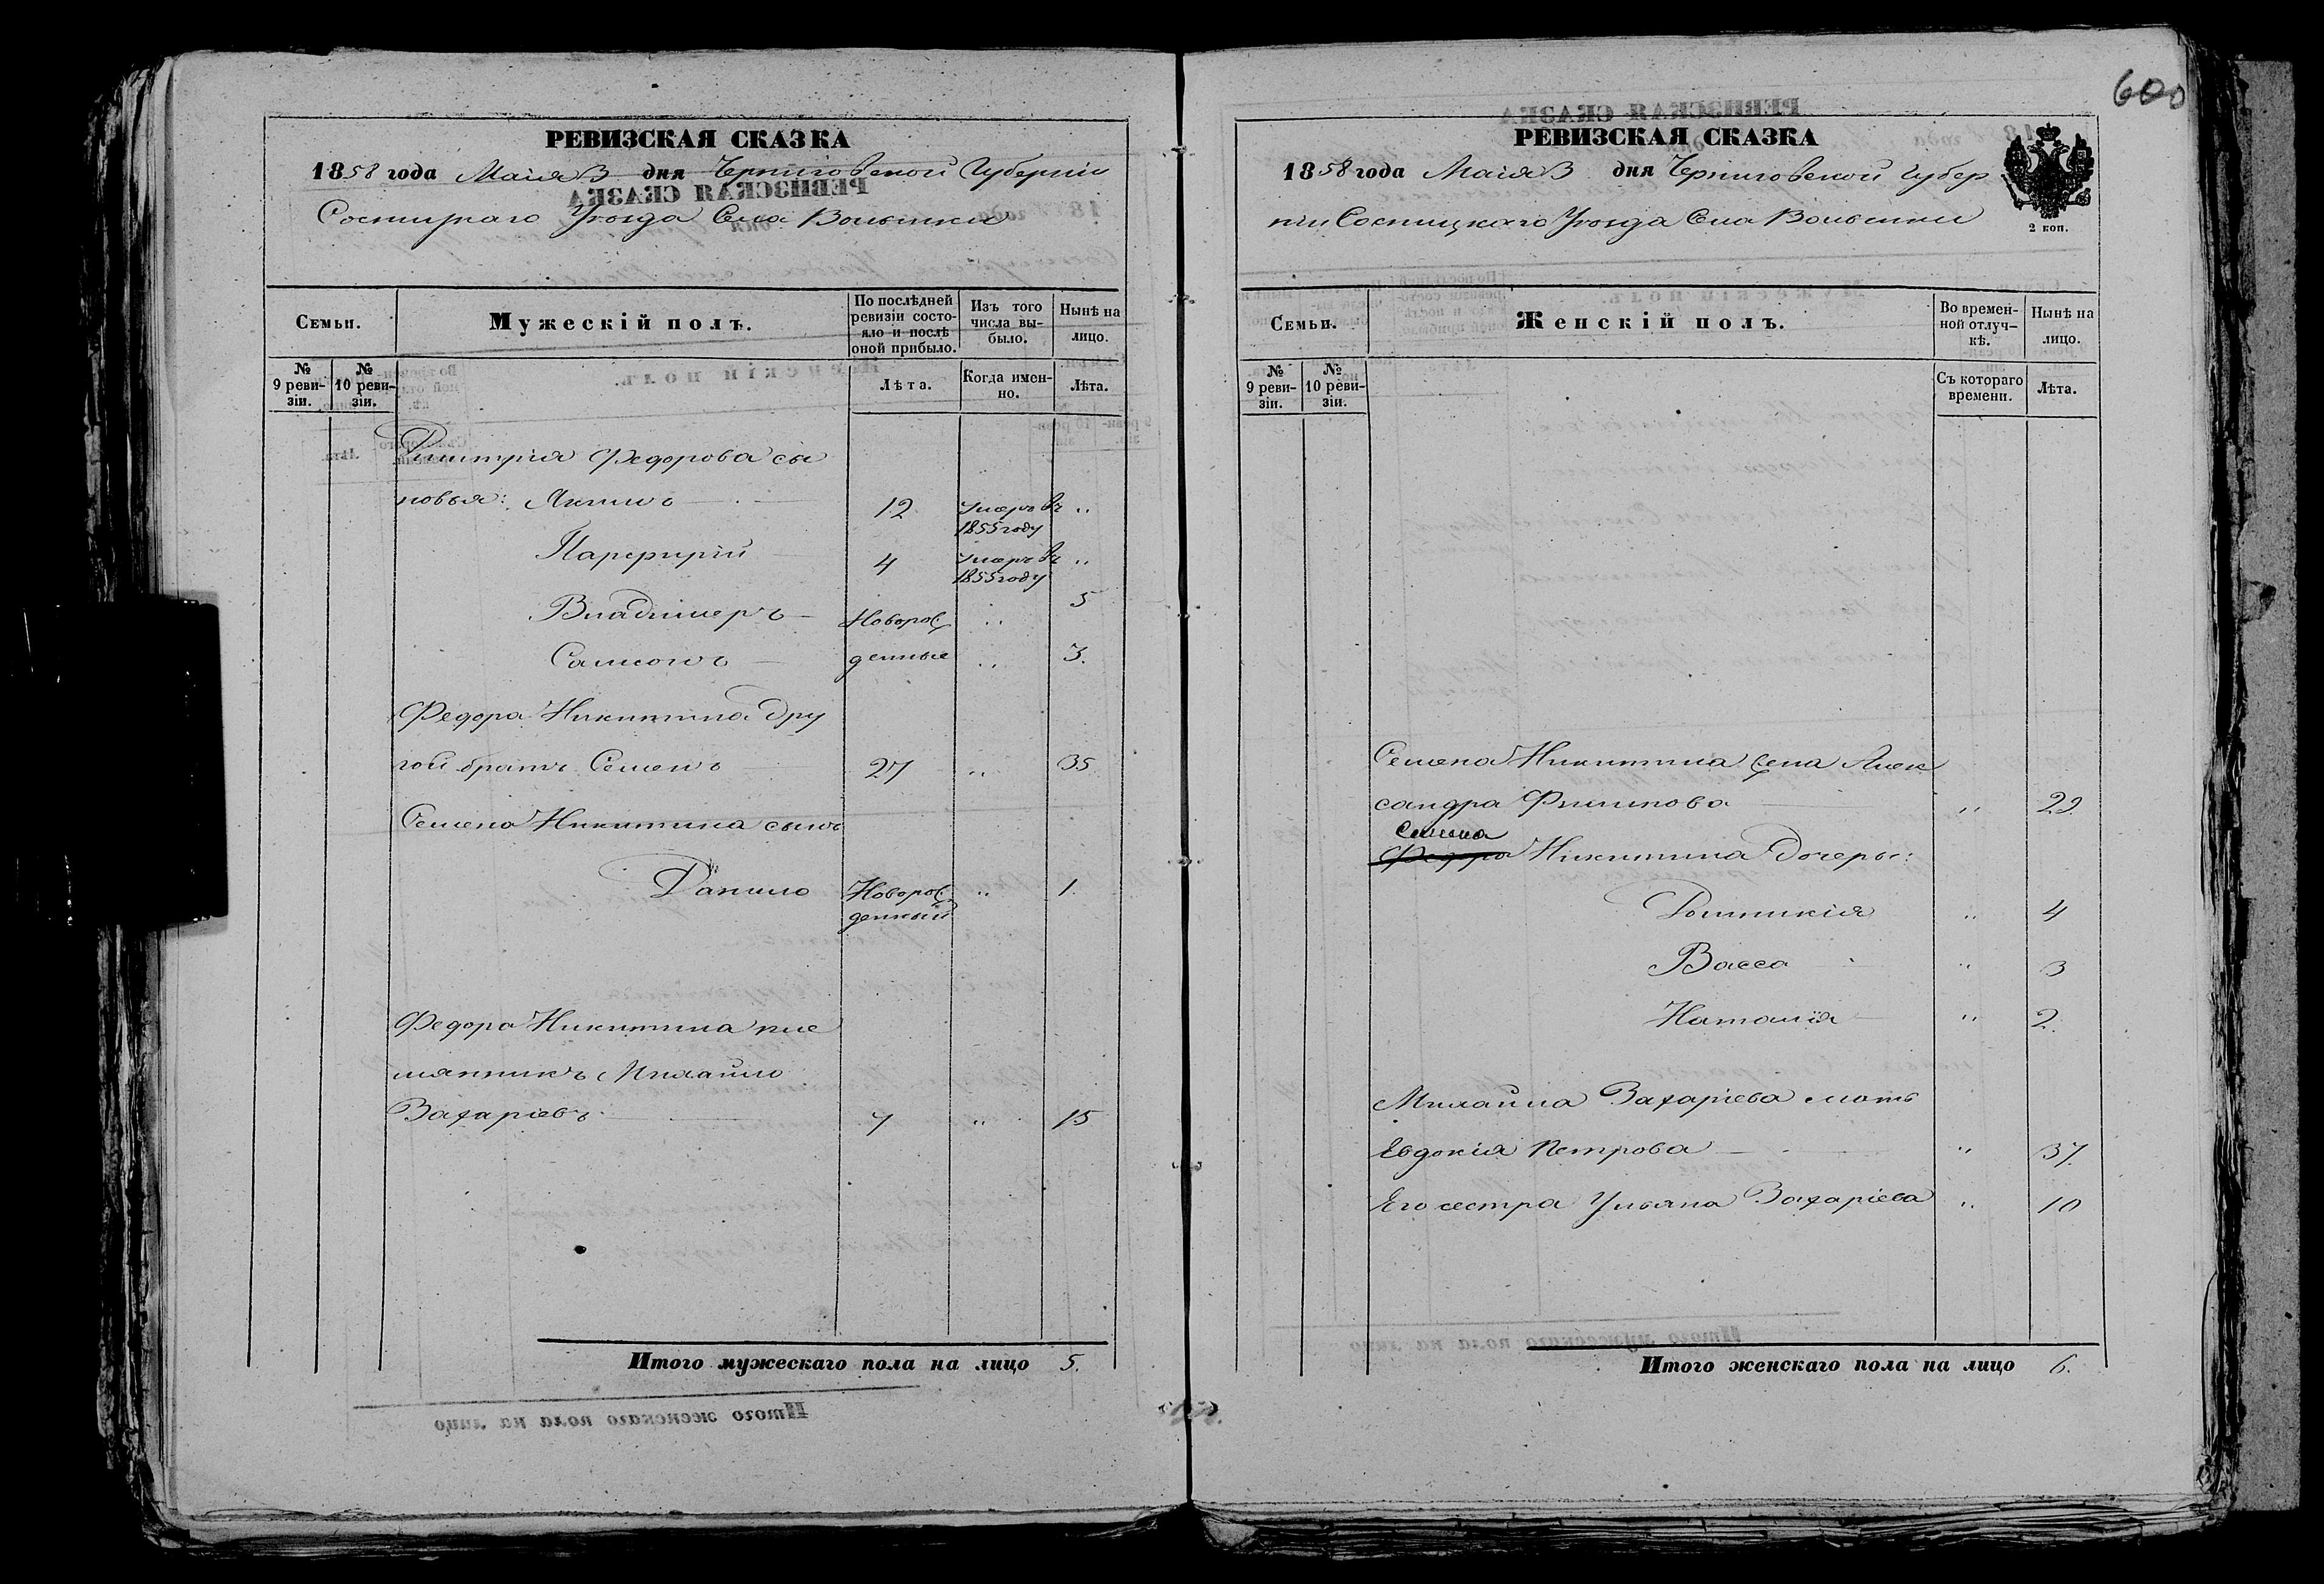 600
РЕВИЗСКАЯ СКАЗКА
1858 года Маія 3 дня Черниговской Губерніи
Сосницкаго Уѣзда Села Волынки
Семьи.
Мужескій полъ.
По послѣдней ревизіи состо-
яло и послѣ оной прибыло.
Изъ того числа вы-
было.
Нынѣ на лицо.
№ 9 реви-
зіи.
№ 10 реви-
зіи.
Лѣта.
Когда имен-
но.
Лѣта.
Дмитрія Федорова сы
новья: Якимъ 12 Умеръ въ 1855 году „
Парфирій 4 Умеръ въ 1855 году „
Владимеръ Новорож „ 5
Самсонъ денные „ 3.
Федора Никитина дру
гой братъ Семенъ 27 „ 35
Семена Никитина сынъ
Данило Новорож „ 1.
денный
Федора Никитина пле
мянникъ Михайло
Захаріевъ 7 „ 15
Итого мужескаго пола на лицо 5.
РЕВИЗСКАЯ СКАЗКА
1858 года Маія 3 дня Черниговской Губер
ніи Сосницкаго Уѣзда Села Волынки
2 коп.
Семьи.
Женскій полъ.
Во времен-
ной отлуч-
кѣ.
Нынѣ на лицо.
№ 9 реви-
зіи.
№ 10 реви-
зіи.
Съ котораго времени.
Лѣта.
Семена Никитина жена Алек
сандра Филипова „ 29.
Семена
Федора Никитина дочеры:
Домникія „ 4
Васса „ 3
Наталія „ 2.
Михайла Захаріева мать
Евдокія Петрова „ 37.
Его сестра Ульяна Захаріева „ 10
Итого женскаго пола на лицо 6.